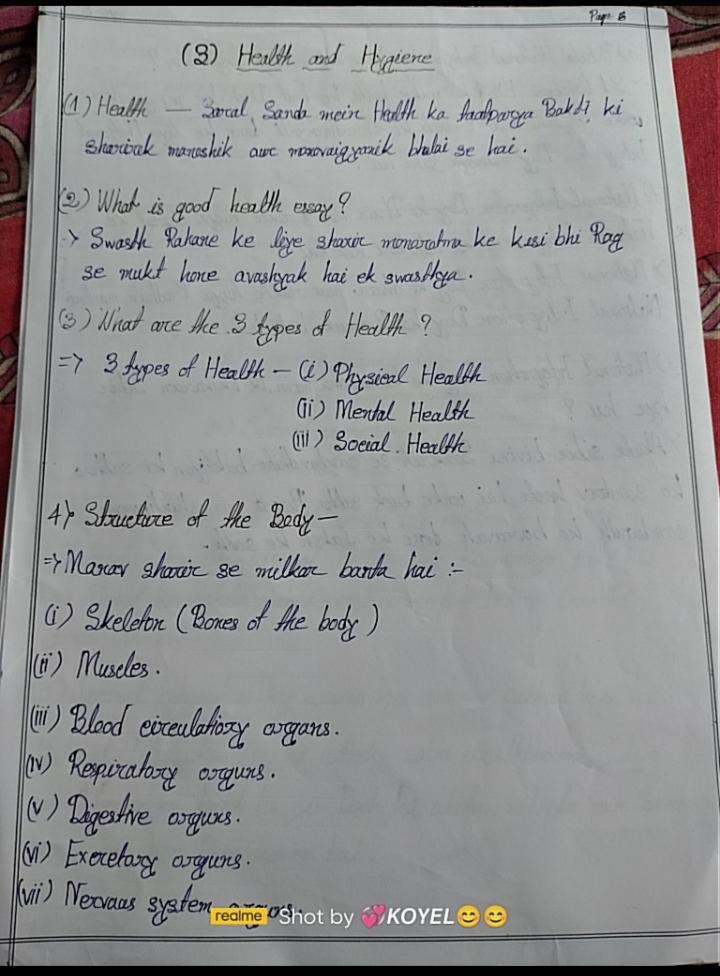 Page 8
(3) Health and Hygiene
(1) Health — Saral Sanda mein Health ka taatparya Bakti ki
sharirik manashik awr manovaigyanik bhalai se hai.
(2) What is good health essay?
-> Swasth Rahane ke liye sharir monaratma ke kisi bhi Rog
se mukt hone avashyak hai ek swasthya.
(3) What are the 3 types of Health?
=> 3 types of Health - (i) Physical Health
(ii) Mental Health
(iii) Social. Health
4) Structure of the Body -
=> Manav sharir se milkar banta hai :-
(i) Skeleton (Bones of the body)
(ii) Muscles.
(iii) Blood circulatiory organs.
(iv) Respiratory orguns.
(v) Digestive orguns.
(vi) Excretory orguns.
(vii) Nervous system
realme Shot by 💞KOYEL😊😊